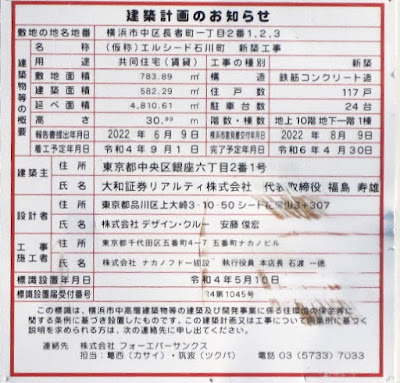 建築計画のお知らせ
敷地の地名地番 横浜市中区長者町一丁目2番1,2,3
建築物等の概要
名称 (仮称)エルシード石川町 新築工事
用途 共同住宅(賃貸) 工事の種別 新築
敷地面積 783.89 ㎡ 構造 鉄筋コンクリート造
建築面積 582.29 ㎡ 住戸数 117戸
延べ面積 4,810.61 ㎡ 駐車台数 24台
高さ 30. m 階数・棟数 地上10階 地下一階 1棟
報告書提出年月日 2022年6月9日 横浜市意見書交付年月日 2022年8月9日
着工予定年月日 令和4年9月1日 完了予定年月日 令和6年4月30日
建築主 住所 東京都中央区銀座六丁目2番1号
氏名 大和証券リアルティ株式会社 代表取締役 福島 寿雄
設計者 住所 東京都品川区上大崎3-10-50
氏名 株式会社 デザイン・クルー 安藤 俊宏
工事施工者 住所 東京都千代田区五番町4-7 五番町ナカノビル
氏名 株式会社 ナカノフドー建設 執行役員 本店長 石渡 一徳
標識設置年月日 令和4年5月10日
標識設置届受付番号 第1045号
この標識は、横浜市中高層建築物等の建築及び開発事業に係る住環境の保全等に
関する条例に基づき設置したものです。この建築計画又は工事について同条例に基づく
説明を求められる方は、次の連絡先に申し出てください。
連絡先 株式会社 フォーエバーサンクス
担当:葛西(カサイ)・筑波(ツクバ) 電話 03(5733)7033